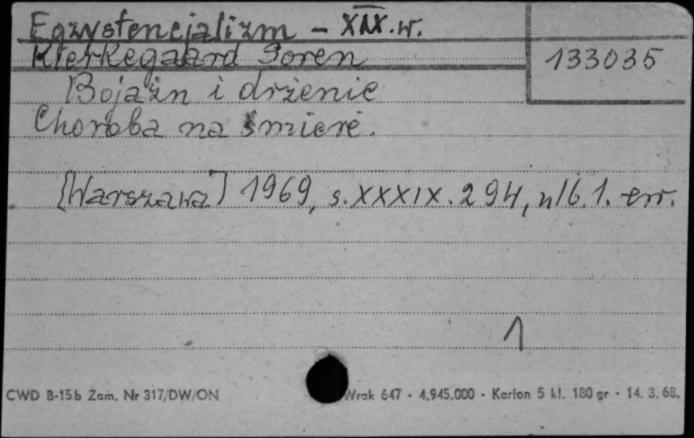 Egzystencjalizm - XIX.w.
Kierkegaard Soren
133035
Bojaźn i drżenie
Choroba na śmierć.
[Warszawa] 1969, s.XXXIX.294, nlb.1. err.
1
CWD B-15b Zam. Nr 317/DW/ON
Wrak 647 - 4.945.000 - Karton 5 kl. 180 gr - 14. 3. 68.